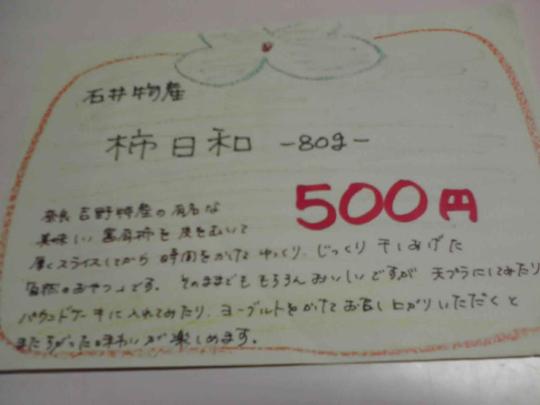 石井物産
柿日和 -80g-
500円
奈良 吉野特産の有名な
美味しい富有柿を皮をむいて
厚くスライスしてから 時間をかけて ゆっくり、じっくり 干しあげた
自然のおやつです。 そのままでももちろんおいしいですが 天プラにしてみたり
パウンドケーキに入れてみたり、ヨーグルトをかけてお召し上がりいただくと
またちがった味わいが楽しめます。